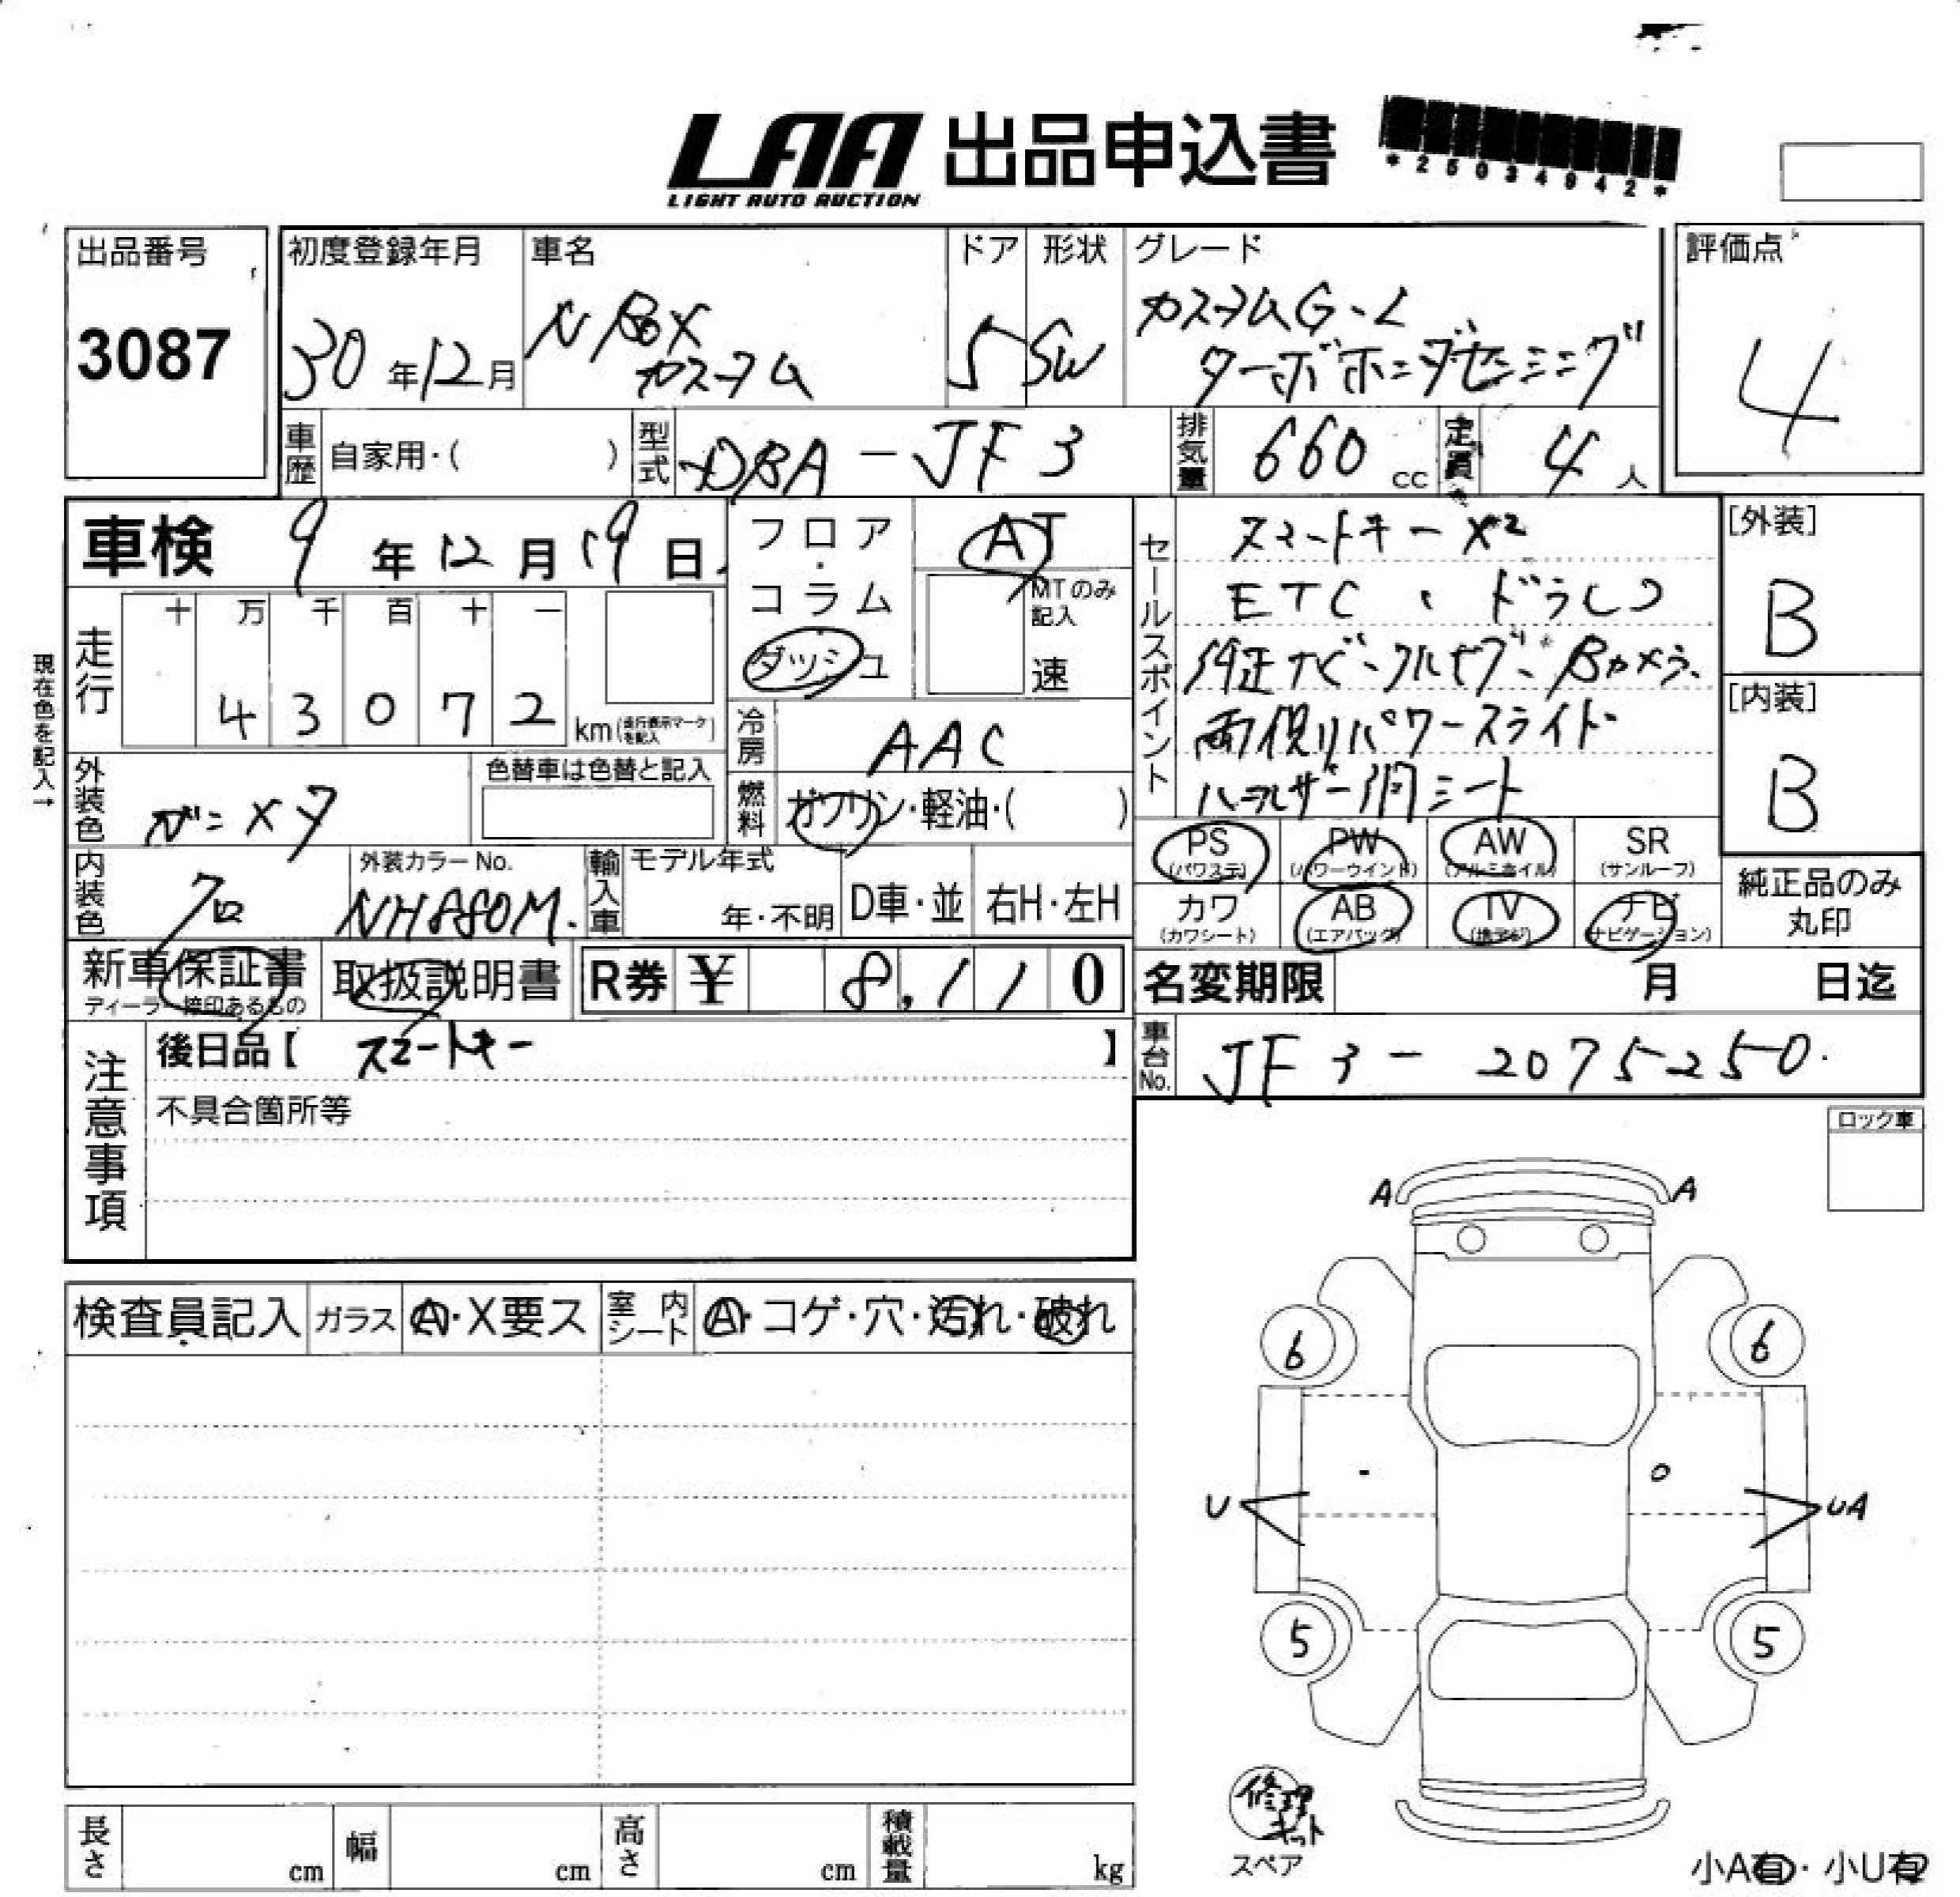 LAA 出品申込書
LIGHT AUTO AUCTION
*25034942*
出品番号
3087
初度登録年月
30年12月
車名
N BOX
カスタム
ドア
5
形状
SW
グレード
カスタムG・L
ターボホンダセンシング
評価点
4
車歴 自家用・( )
型式 DBA-JF3
排気量 660 cc
定員 4 人
車検 9年12月19日
フロア・コラム
ダッシュ
AT
MTのみ記入
速
セールスポイント
スマートキー×2
ETC、ドラレコ
純正ナビ・フルセグ・Bカメラ、
両側パワースライド
ハーフレザー調シート
[外装]
B
[内装]
B
現在色を記入→
走行
十 万 千 百 十 一
4 3 0 7 2 km(走行表示マークを記入)
冷房 AAC
燃料 ガソリン・軽油・( )
外装色 ガンメタ
色替車は色替と記入
PS(パワステ) PW(パワーウインド) AW(アルミホイル) SR(サンルーフ)
カワ(カワシート) AB(エアバック) TV(地デジ) ナビ(ナビゲーション)
純正品のみ丸印
内装色 クロ
外装カラーNo.
NH880M.
輸入車
モデル年式
年・不明
D車・並
右H・左H
新車保証書
ディーラー捺印あるもの
取扱説明書
R券 ¥ 8,110
名変期限 月 日迄
車台No. JF3-2075250.
注意事項
後日品【 スマートキー 】
不具合箇所等
ロック車
A A
検査員記入 ガラス A・X要ス 室内シート A・コゲ・穴・汚れ・破れ
6 6
U UA
5 5
修理キット
スペア
長さ cm 幅 cm 高さ cm 積載量 kg
小A有・小U有